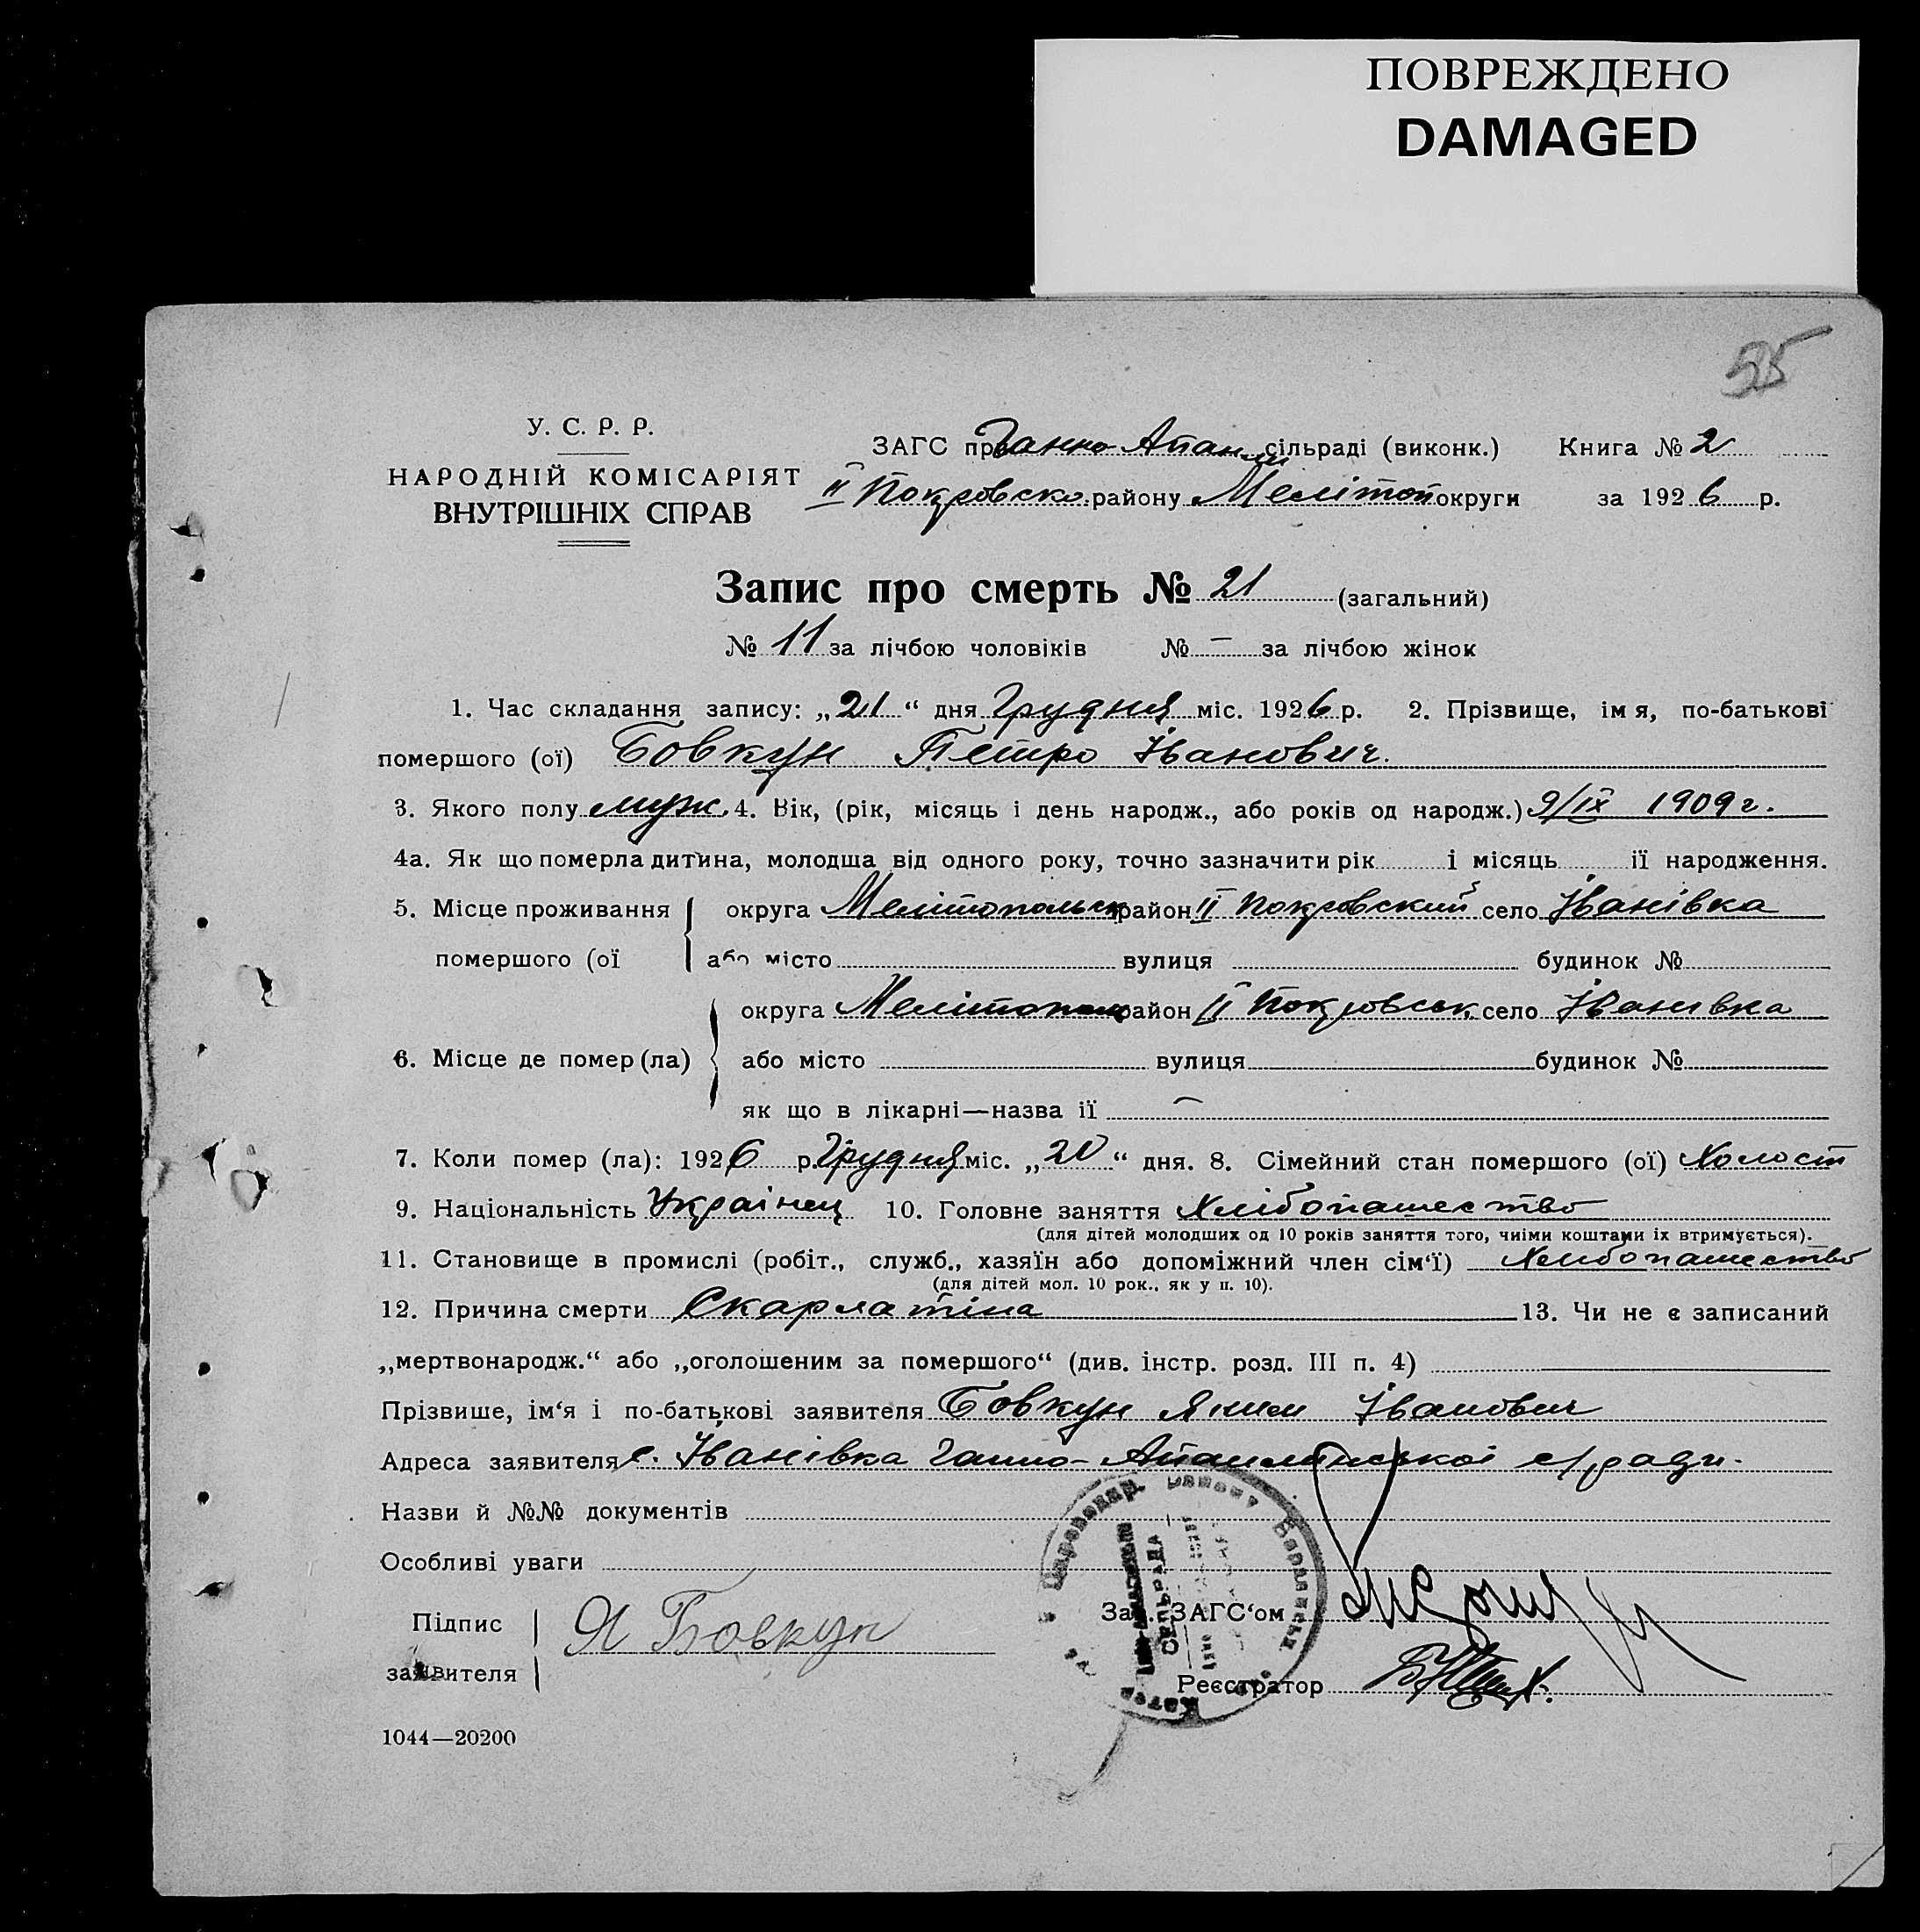 ПОВРЕЖДЕНО
DAMAGED
55
У. С. Р. Р.
НАРОДНІЙ КОМІСАРІЯТ
ВНУТРІШНІХ СПРАВ
ЗАГС при Ганно-Апанли сільраді (виконк.) Книга № 2
II Покровско. району Мелітоп округи за 1926 р.
Запис про смерть № 21 (загальний)
№ 11 за лічбою чоловіків № — за лічбою жінок
1. Час складання запису: „21“ дня Грудня міс. 1926 р. 2. Прізвище, ім я, по-батькові
помершого (ої) Бовкун Петро Іванович.
3. Якого полу муж. 4. Вік, (рік, місяць і день народж., або років од народж.) 9/IX 1909 г.
4а. Як що померла дитина, молодша від одного року, точно зазначити рік і місяць її народження.
5. Місце проживання помершого (ої округа Мелітопольск район II Покровский село Іванівка
або місто вулиця будинок №
6. Місце де помер (ла) округа Мелітопол район II Покровськ. село Іванівка
або місто вулиця будинок №
як що в лікарні—назва її —
7. Коли помер (ла): 1926 р. Грудня міс. „20“ дня. 8. Сімейний стан помершого (ої) Холост
9. Національність Українец 10. Головне заняття Хлібопашество
(для дітей молодших од 10 років заняття того, чиїми коштами їх втримується).
11. Становище в промислі (робіт., служб., хазяїн або допоміжний член сім‘ї) Хлібопашество
(для дітей мол. 10 рок., як у п. 10).
12. Причина смерти Скарлатіна 13. Чи не є записаний
„мертвонародж.“ або „оголошеним за помершого“ (див. інстр. розд. III п. 4)
Прізвише, ім‘я і по-батькові заявителя Бовкун Яким Іванович
Адреса заявителя с. Іванівка Ганно-Апанлинської с/ради.
Назви й №№ документів
Особливі уваги
Підпис заявителя Я Бовкун
Зав. ЗАГС‘ом
СІЛЬРАДА
Реєстратор
1044—20200